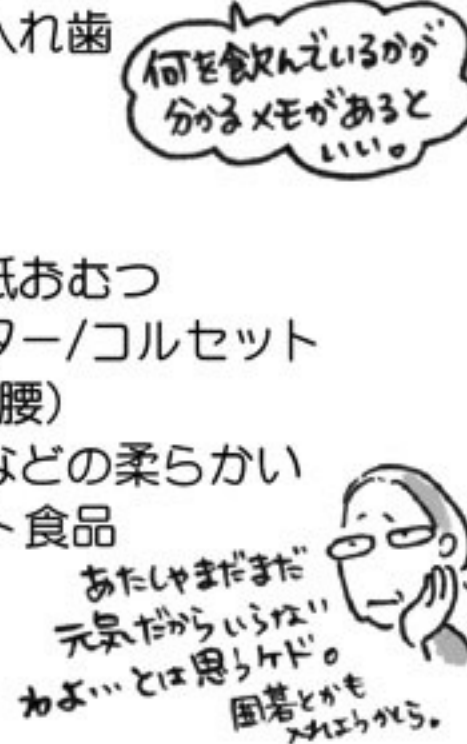 入れ歯
何を飲んでいるかが
分かるメモがあると
いい。
紙おむつ
ター/コルセット
腰）
などの柔らかい
ト食品
あたしゃまだまだ
元気だからいらない
わよ…とは思うケド。
囲碁とかも
入れようかしら。